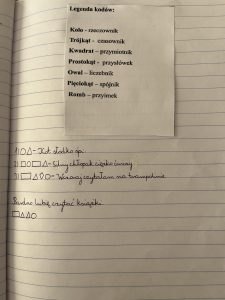 Legenda kodów:
Koło - rzeczownik
Trójkąt - czasownik
Kwadrat – przymiotnik
Prostokąt - przysłówek
Owal – liczebnik
Pięciokąt - spójnik
Romb – przyimek
1) - Kot słodko śpi.
2) - Silny chłopak ciężko ćwiczy.
3) - Wczoraj czytałam na trampolinie.
Bardzo lubię czytać książki.